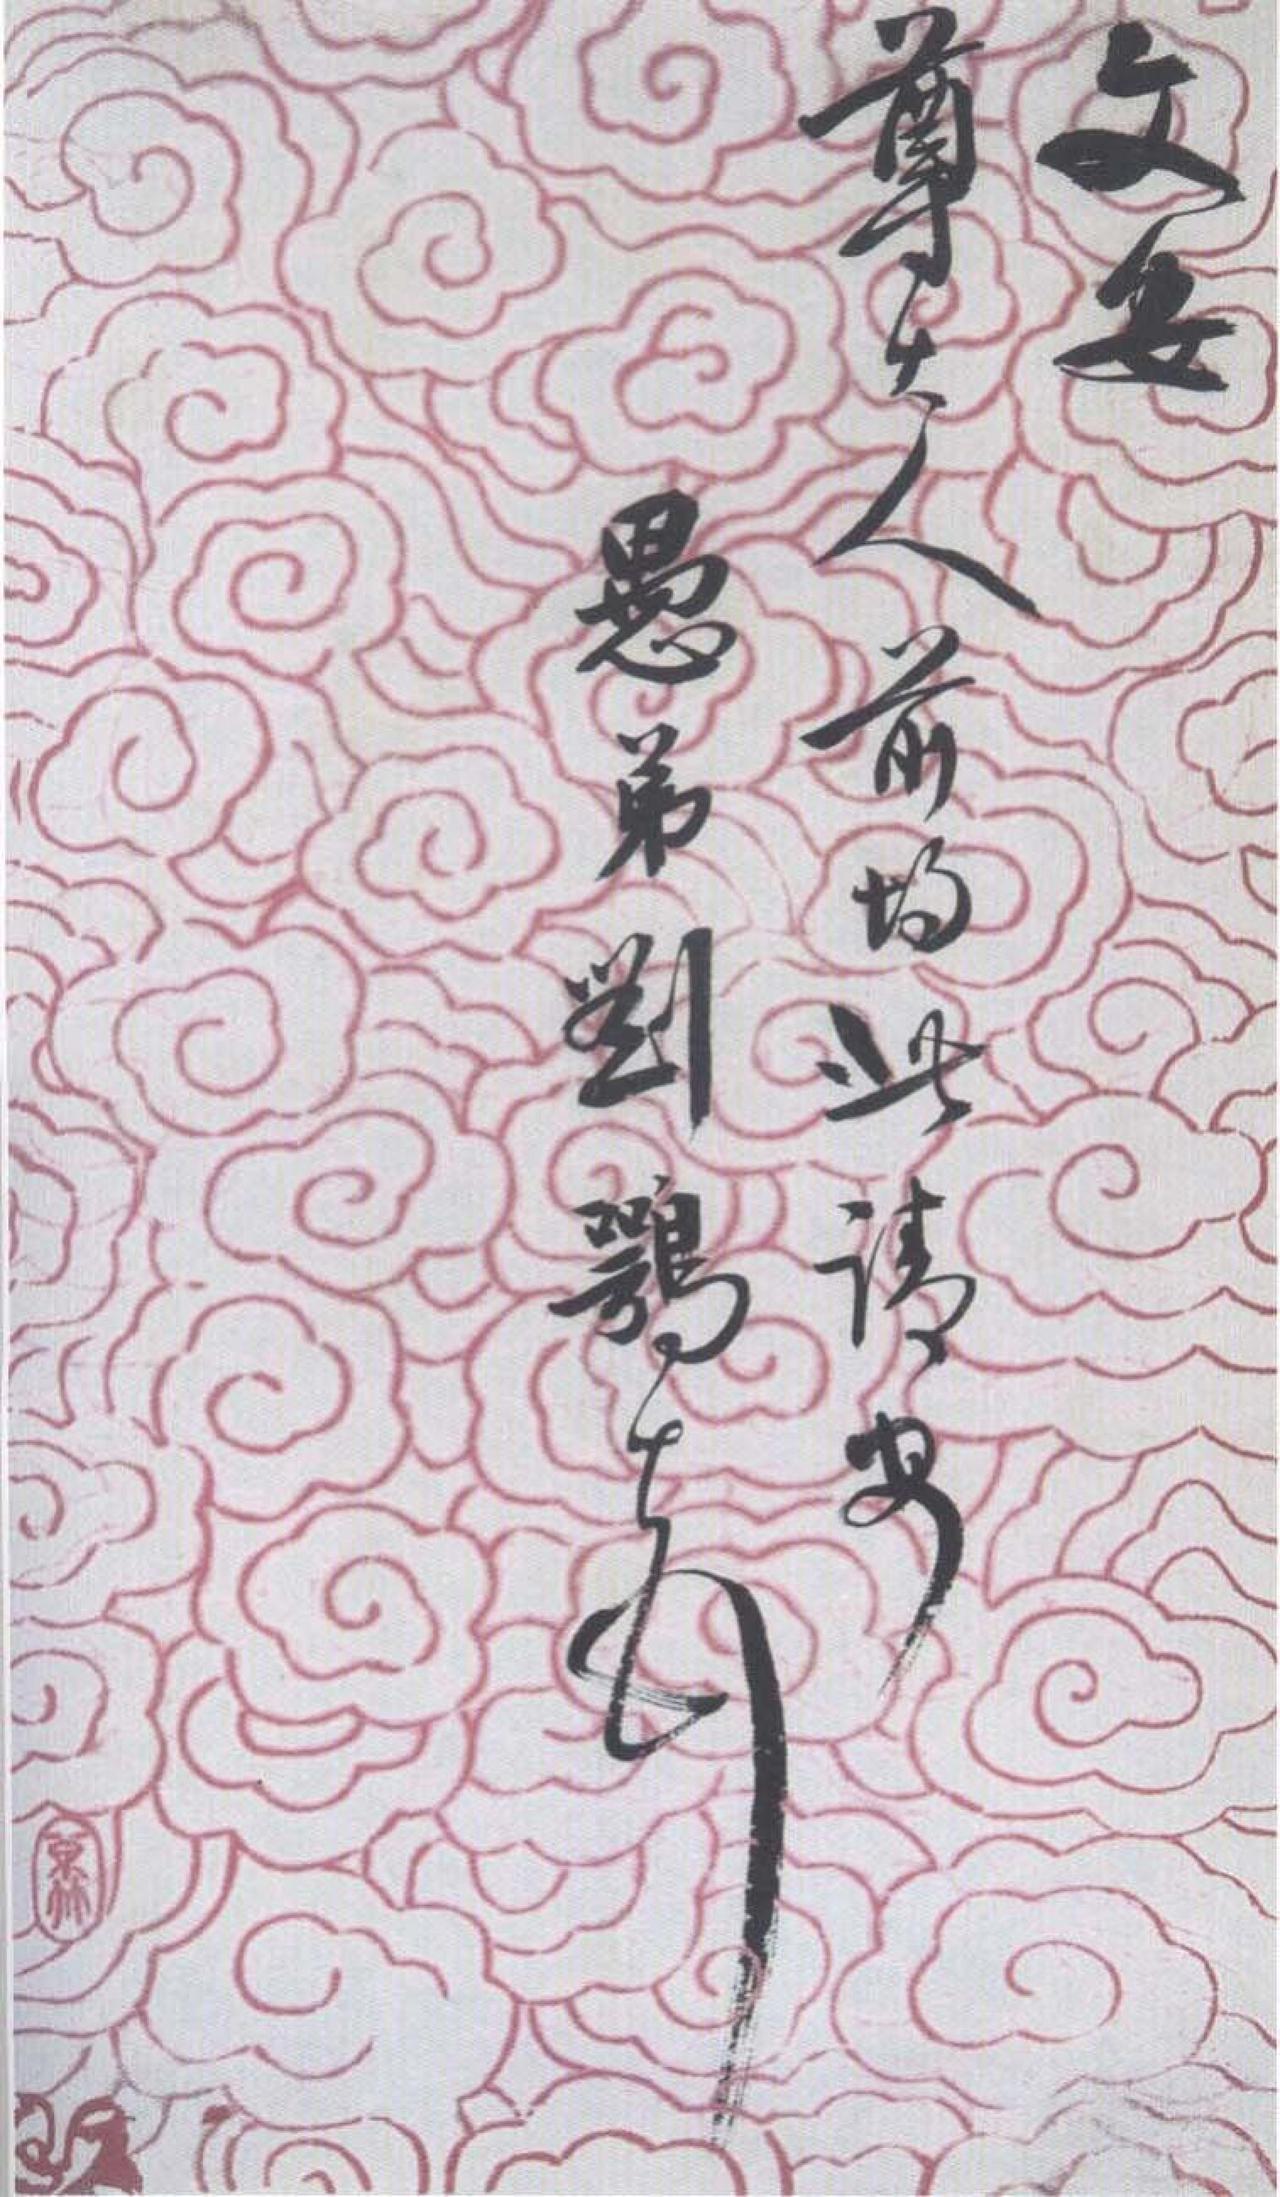 文安
尊大人前均此請安
愚弟劉鶚頓首